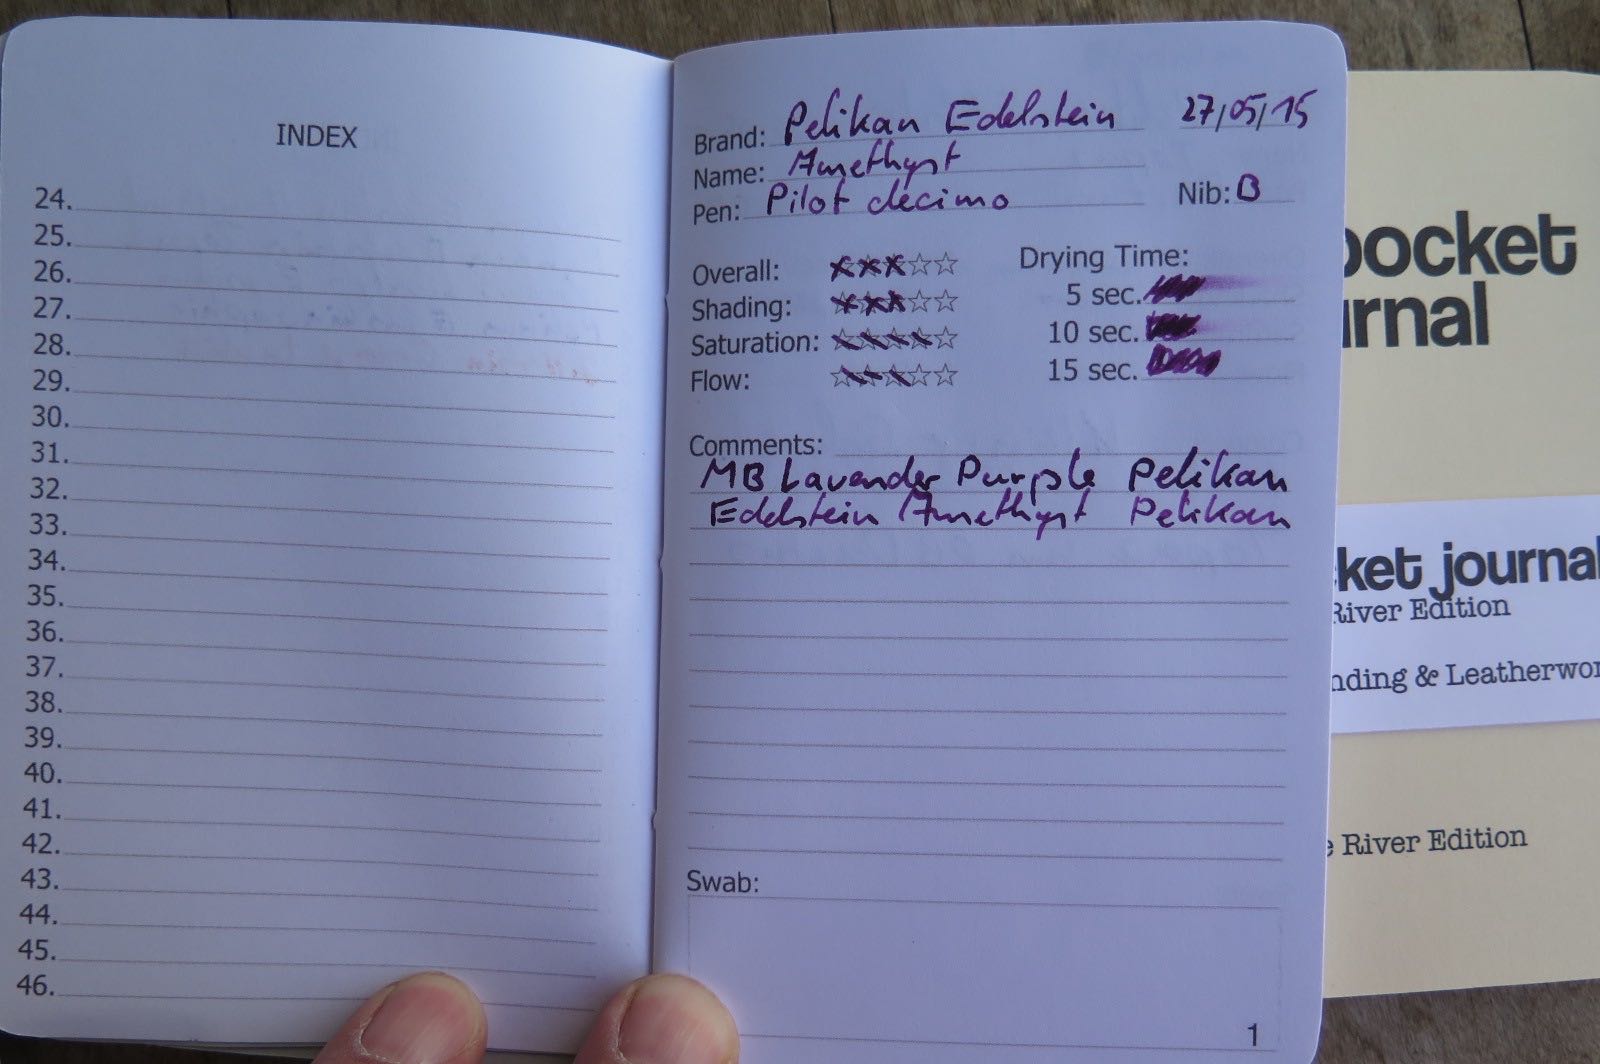 INDEX
24.
25.
26.
27.
28.
29.
30.
31.
32.
33.
34.
35.
36.
37.
38.
39.
40.
41.
42.
43.
44.
45.
46.
Brand: Pelikan Edelstein 27/05/15
Name: Amethyst
Pen: Pilot decimo Nib: B
Overall: ☆☆☆☆☆ Drying Time:
Shading: ☆☆☆☆☆ 5 sec.
Saturation: ☆☆☆☆☆ 10 sec.
Flow: ☆☆☆☆☆ 15 sec.
Comments:
MB Lavender Purple Pelikan
Edelstein Amethyst Pelikan
Swab:
1
pocket
urnal
ket journal
River Edition
nding & Leatherwor
e River Edition